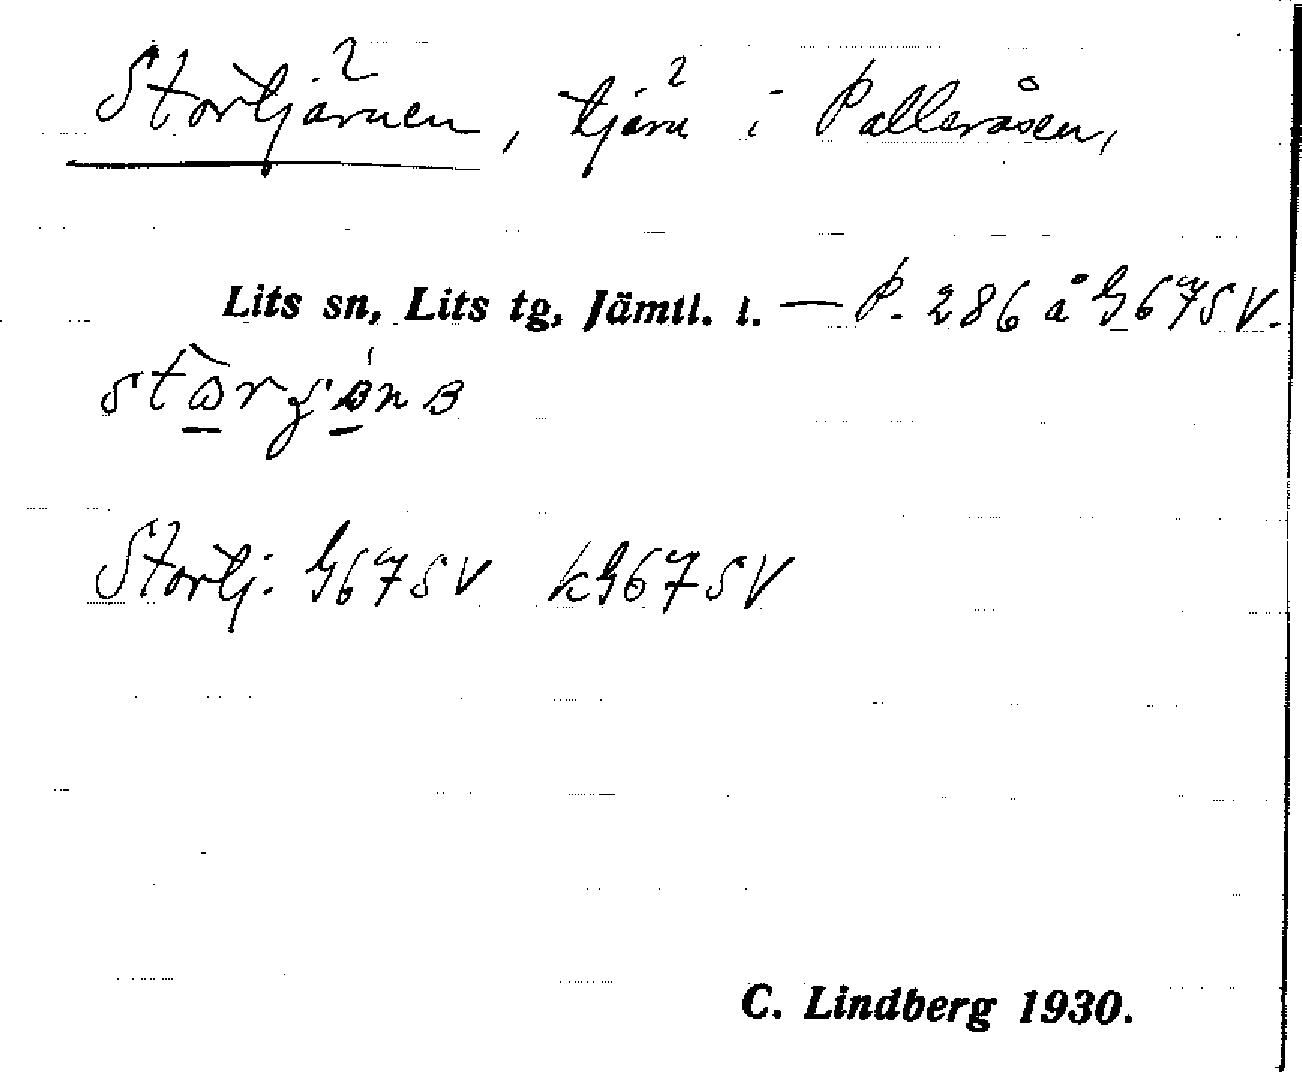 Stortjärnen, tjärn i Palleråsen,
Lits sn, Lits tg, Jämtl. l. — P. 286 å G67SV.
Stortj. G67SV kG67SV
C. Lindberg 1930.